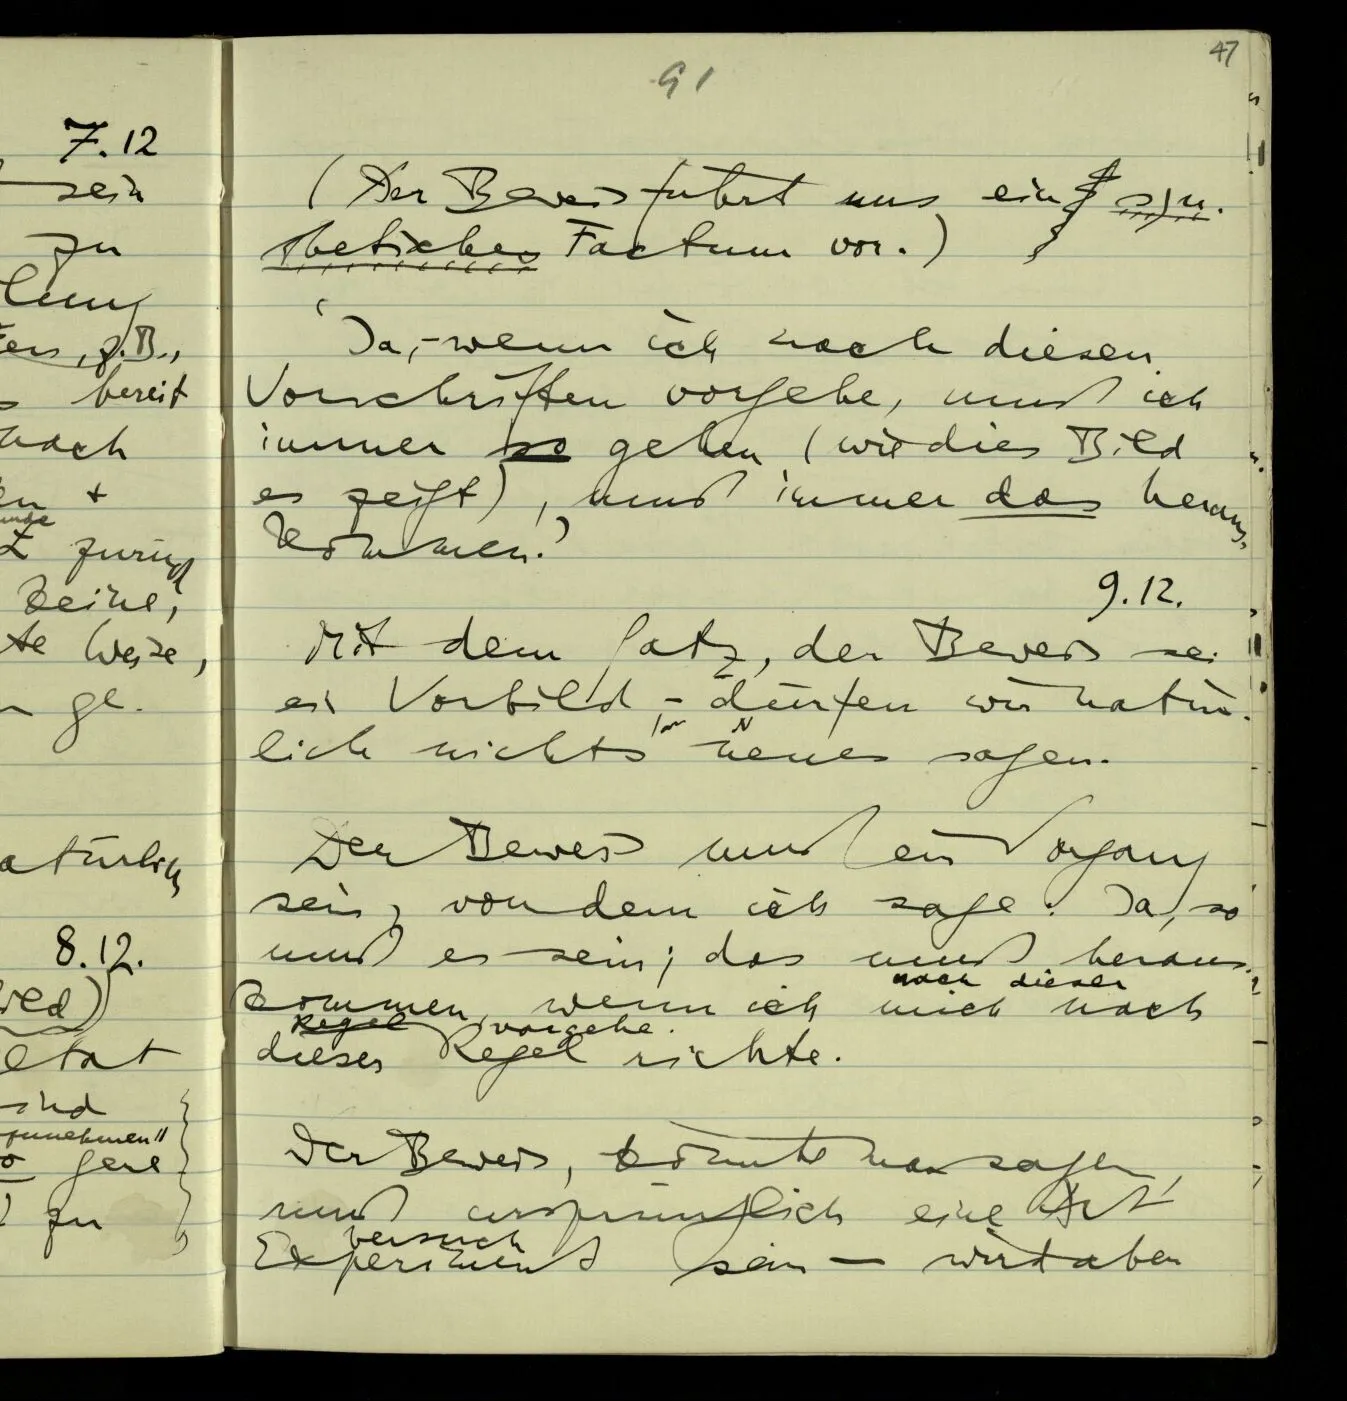 7.12
sein
zu
z.B.,
bereit
nach
zurück
keine,
te Weise,
ge-
atürlich
8.12.
ild)
etat
sind
zunehmen"
gene
zu
47
91
(Der Beweis führt uns ein syn-
thetisches Factum vor.)
'Ja, – wenn ich nach diesen
Vorschriften vorgehe, muß ich
immer so gehen (wie dies Bild
es zeigt), muß immer das heraus-
kommen.'
9.12.
Mit dem Satz, der Beweis sei
ein Vorbild – dürfen wir natür-
lich nichts neues sagen.
Der Beweis muß ein Vorgang
sein, von dem ich sage: Ja, so
muß es sein; das muß heraus-
nach dieser
kommen, wenn ich mich nach
Regel vorgehe.
dieser Regel richte.
Der Beweis, könnte man sagen,
muß ursprünglich eine Art
Versuch
Experiment sein – wird aber